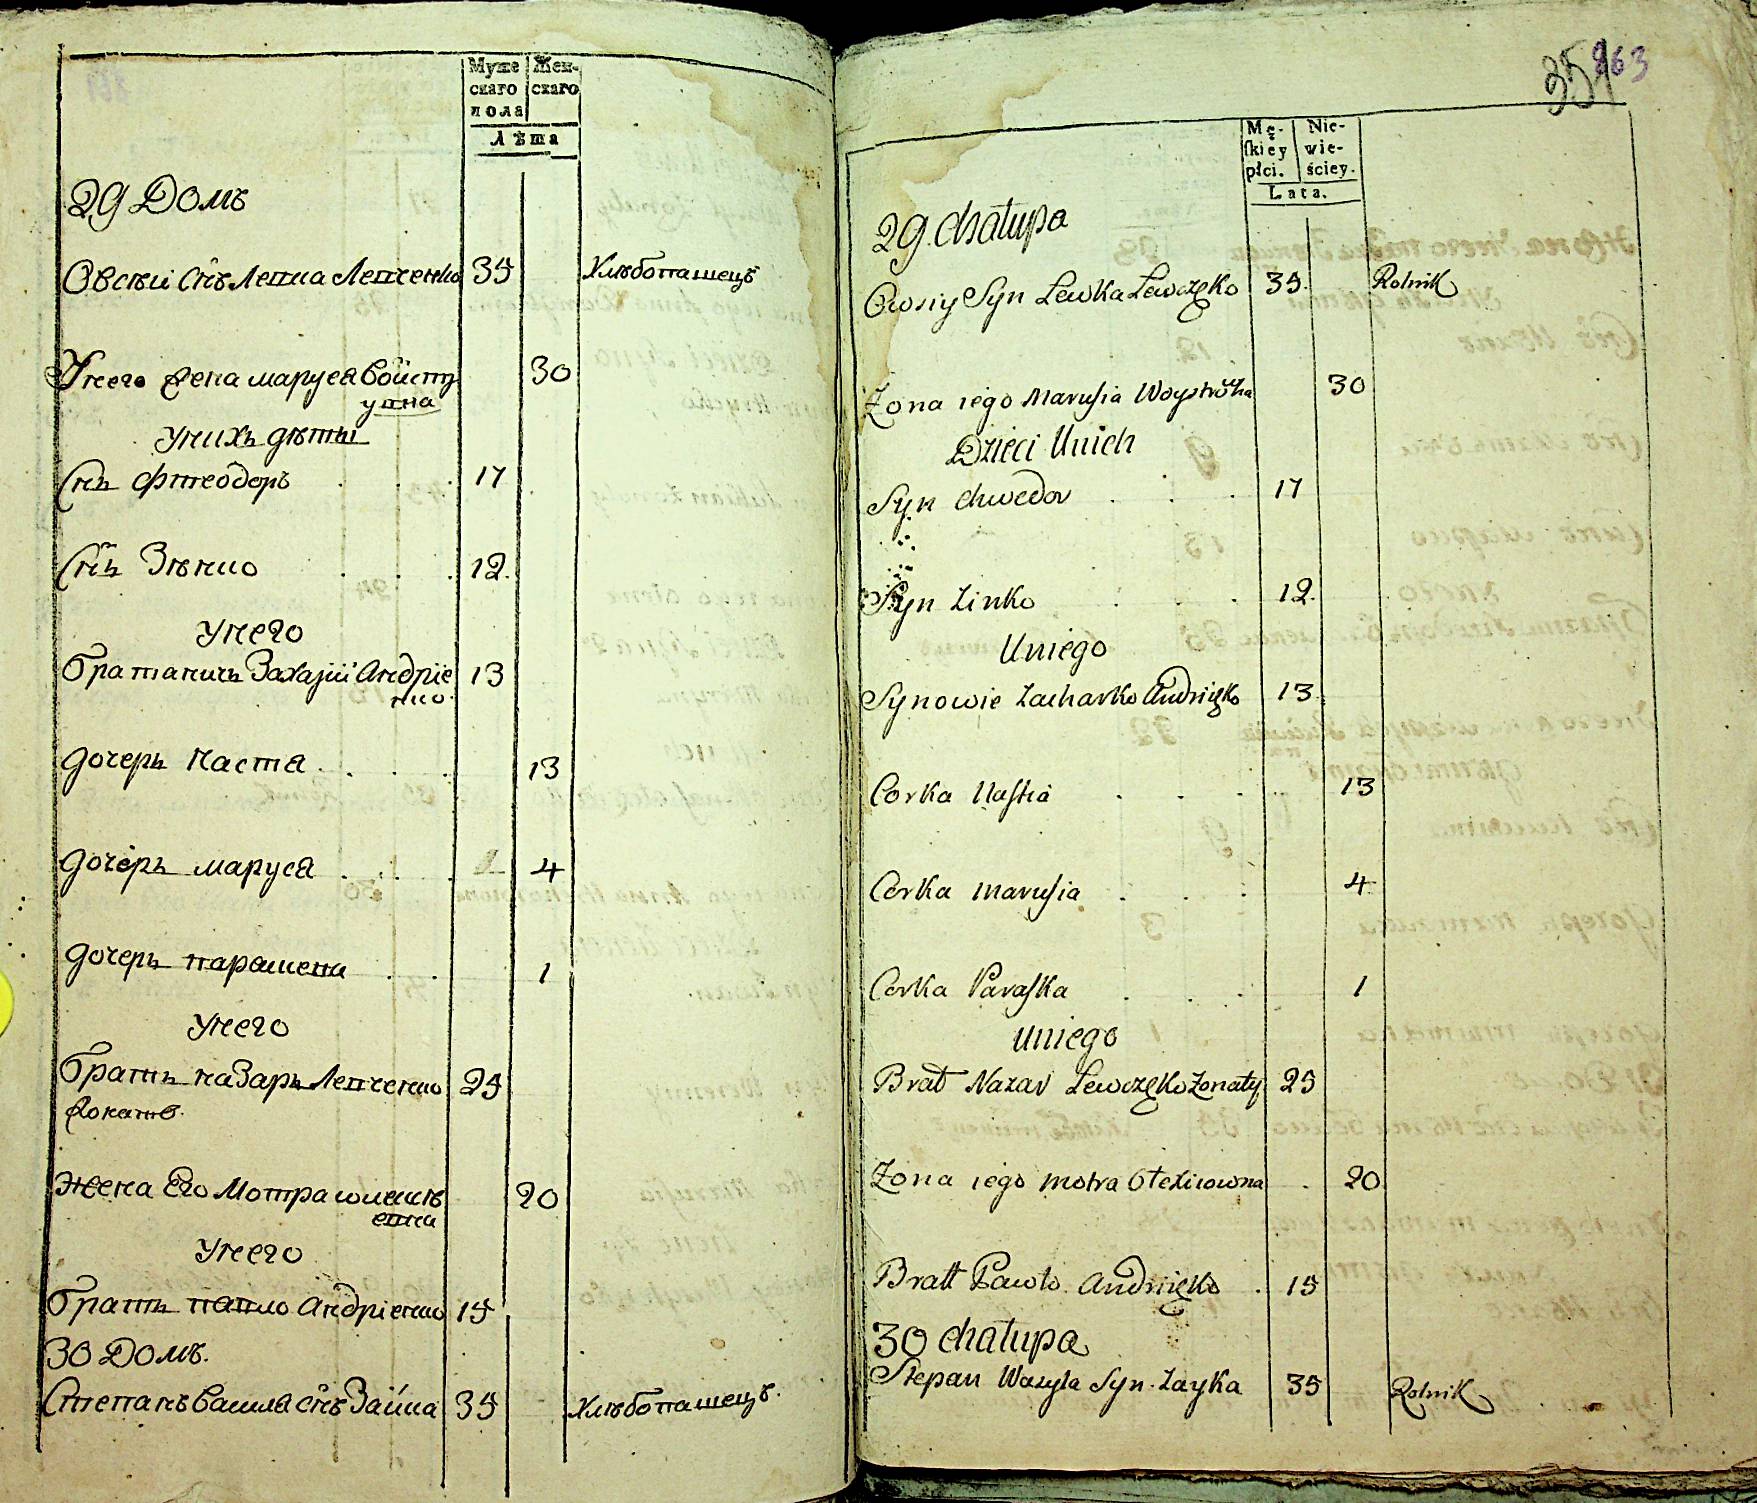 Муже Жен-
скаго скаго
пола
Лѣта
29 Домъ
Овсѣй Снъ Левка Левченко 35 Хлѣбопашецъ
Унего Жена маруся Войст 30
уювна
Унихъ дѣты
Снъ Фтеодоръ 17
Снъ Зѣнко 12.
Унего
братаничъ Захарій Андріе 13
нко.
дочеръ Наста 13
дочеръ маруся 4
дочеръ парашка 1
Унего
братъ назаръ Левченко 25
Жонатъ.
Жена Его Мотра олексѣ 20
евна
Унего
братъ павло Андріенко 15
30 Домъ.
Степанъ Василя снъ Зайка 35 Хлѣбопашецъ.
351 363
Mę- Nie-
ſkiey wie-
płci. ściey.
Lata.
29. Chałupa
Owsiy Syn Lewka Lewczęko 35. Rolnik
Zona iego Maruſia 30
Dzieci Unich
Syn Chwedor 17
Syn Zinko 12.
Uniego
Synowie Zacharko Andrięko 13.
Corka Naſtia 13
Corka Maruſia 4
Corka Paraſka 1
Uniego
Brat Nazar Lewczęko Zonaty 25
Zona iego Motra Olexiiowna 20
Bratt Pawło Andrięko 15
30 Chałupa
Stepan Wasyla Syn Zayka 35 Rolnik